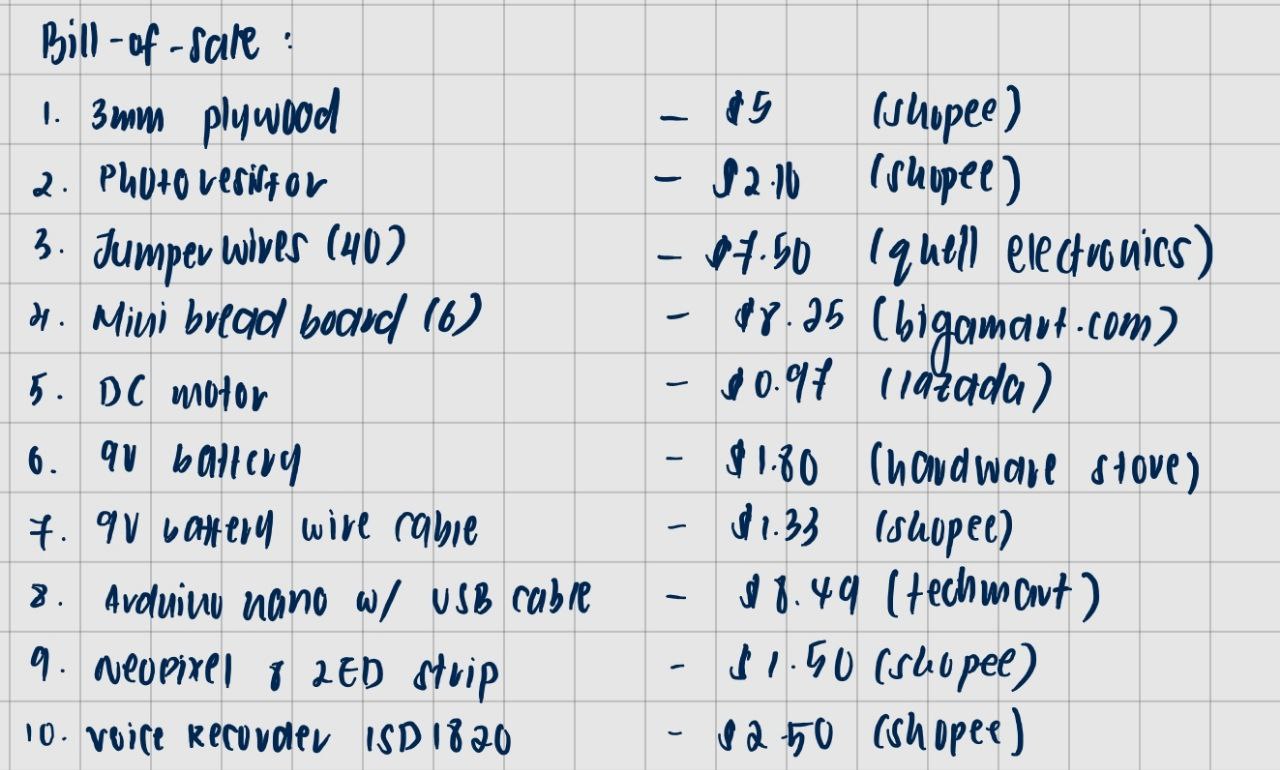 Bill-of-sale :
1. 3mm plywood - $5 (shopee)
2. Photoresistor - $2.10 (shopee)
3. Jumper wires (40) - $7.50 (quell electronics)
4. Mini bread board (6) - $8.25 (bigamart.com)
5. DC motor - $0.97 (lazada)
6. 9V battery - $1.80 (hardware store)
7. 9V battery wire cable - $1.33 (shopee)
8. Arduino nano w/ USB cable - $8.49 (techmart)
9. Neopixel 8 LED strip - $1.50 (shopee)
10. Voice Recorder ISD1820 - $2.50 (shopee)